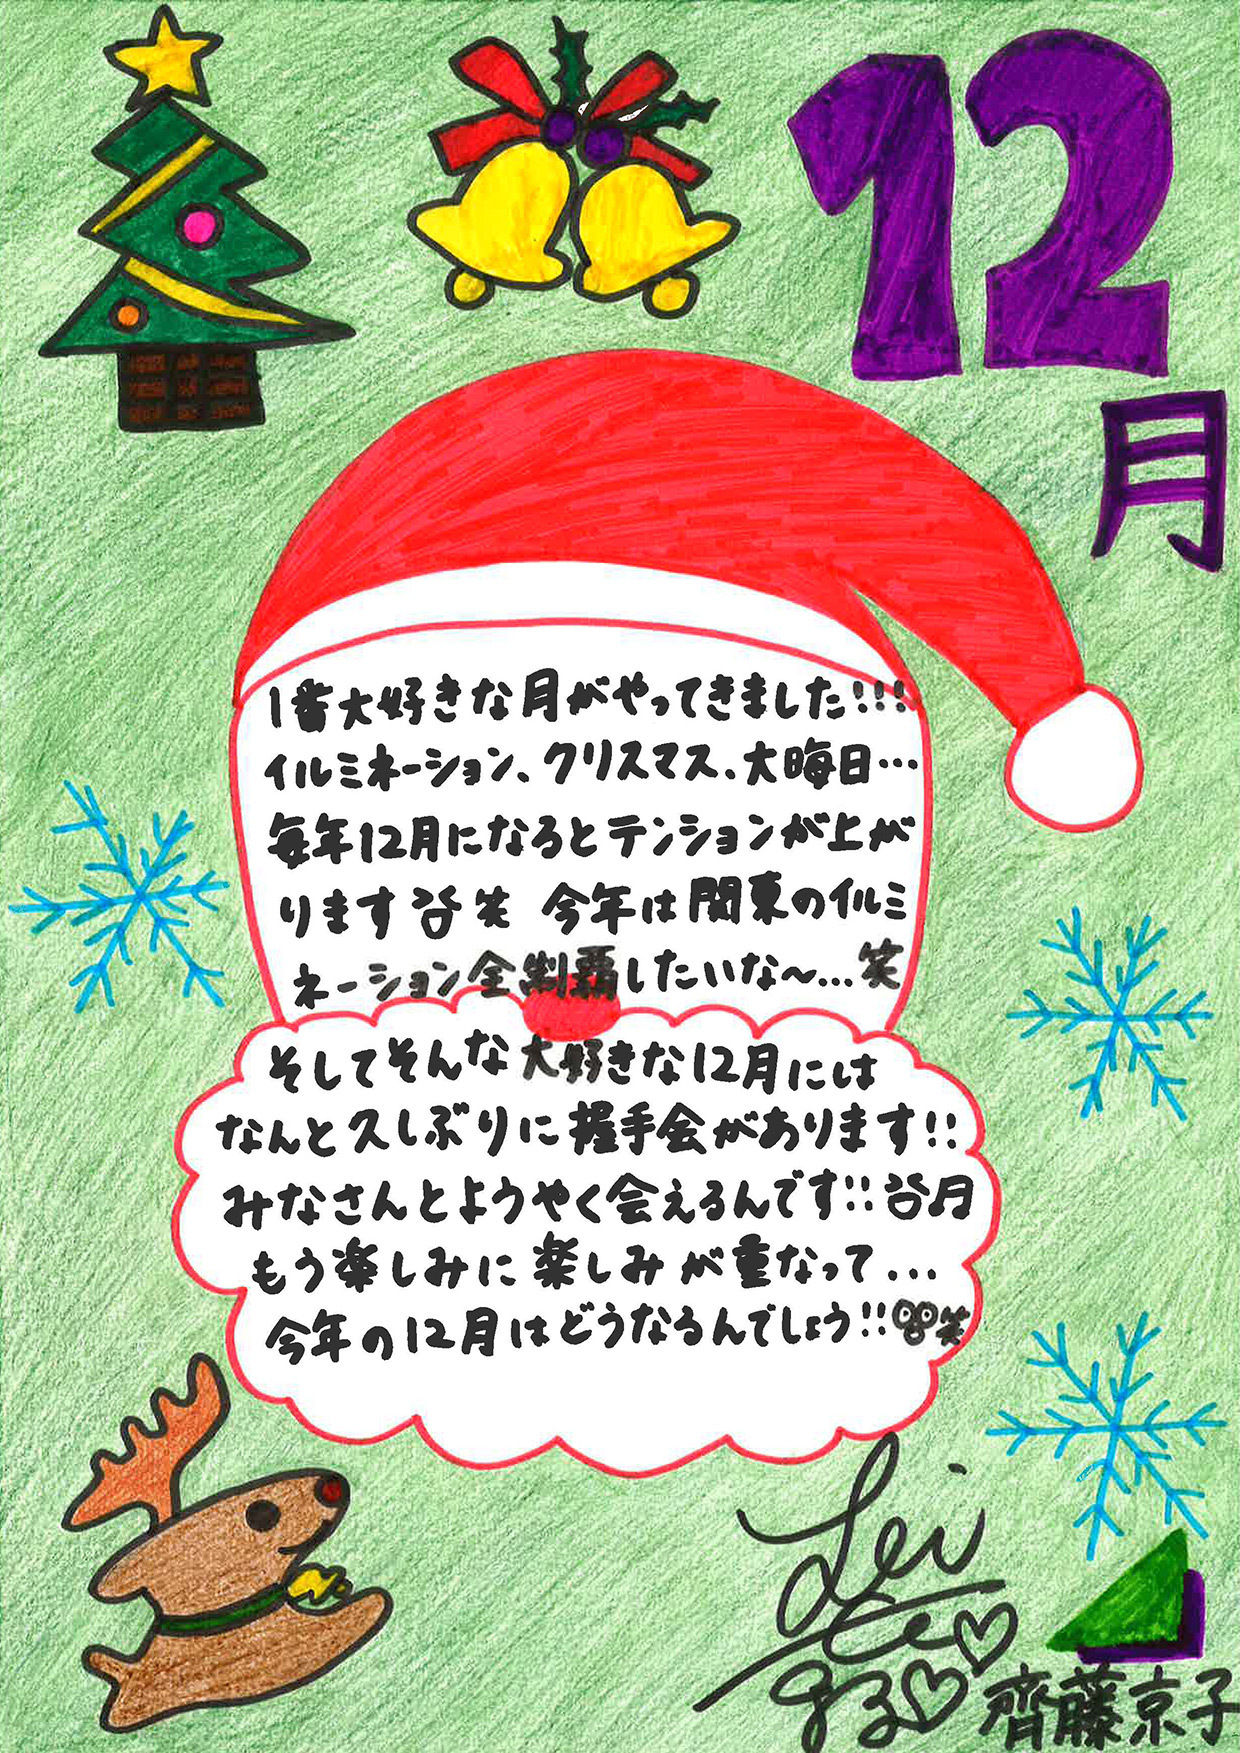 12月
1番大好きな月がやってきました!!!
イルミネーション、クリスマス、大晦日…
毎年12月になるとテンションが上が
ります 笑 今年は関東のイルミ
ネーション全制覇したいな〜... 笑
そしてそんな大好きな12月には
なんと久しぶりに握手会があります!!
みなさんとようやく会えるんです!!
もう楽しみに楽しみが重なって...
今年の12月はどうなるんでしょう!! 笑
齊藤京子